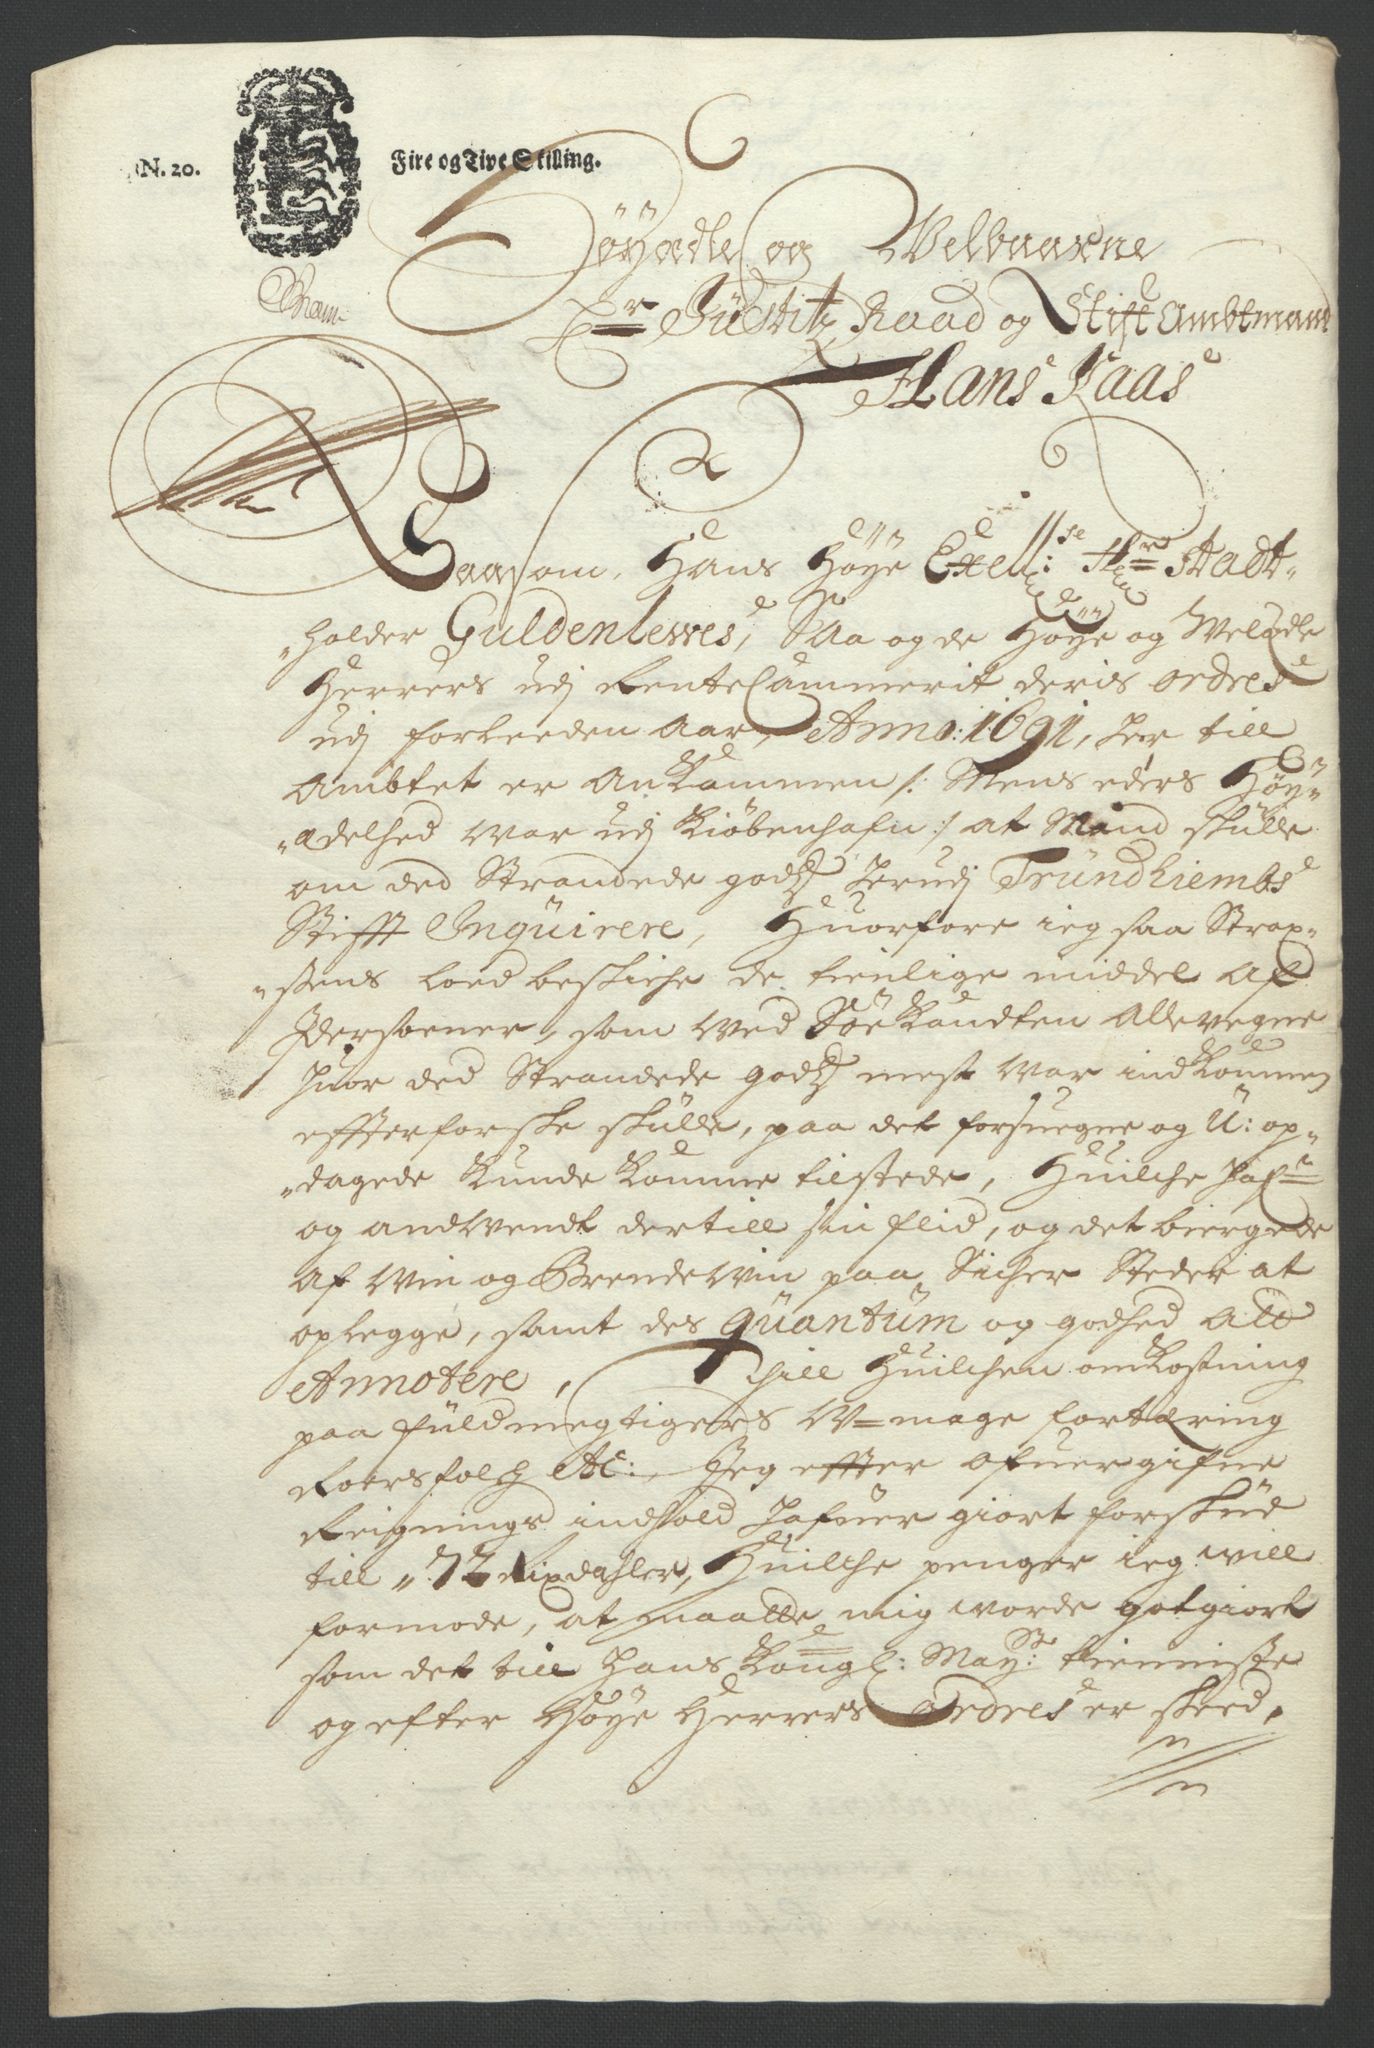 N. 20.
Fire og Tive Skilling.
Høyædle og Velbaarne
Hr Justitz Raad og Stift Ambtmand
Hans Kaas
Saasom, Hans Høye Excell:se Hr Stadt-
"holder Guldenlewes, Saa og de Høye og Velædle
Herrers udj RenteCammerit deris ordres
udj forleeden Aar, Anno: 1691, her till
Ambtet er Ankommen /: Mens eders Høy-
"ædelhed war udj Kiøbenhafn :/ at Mand skulle
om ded Strandede godtz herudj Trundhiembs
Stifft Inquirere, Huorfore ieg saa Strax-
"sens loed beskiche de tienlige middel af
Persoener, som wed Søekandten Allevegne
huor ded Strandede godtz mest war indkommen
effterforske skulle, paa det forsuegne og U: op-
"dagede kunde komme tilstede, Huilche hafr
og andwendt dertill sin flid, og det biergede
af Win og BrendeWin paa Sicher Steder at
oplegge, samt des quantum og godhed altt
Annotere, Till Huilchen omkostning
paa fuldmegtigers W=mage fortæring
Roersfolch etc: Jeg effter ofuergifne
Reignings indhold hafuer giort forskud
till " 72 Rixdahler, Huilche penger ieg will
formode, at maatte mig worde gotgiort
som det till hans Kongl: May:st tienniste
og efter Høye Herrers Ordres er skeed.